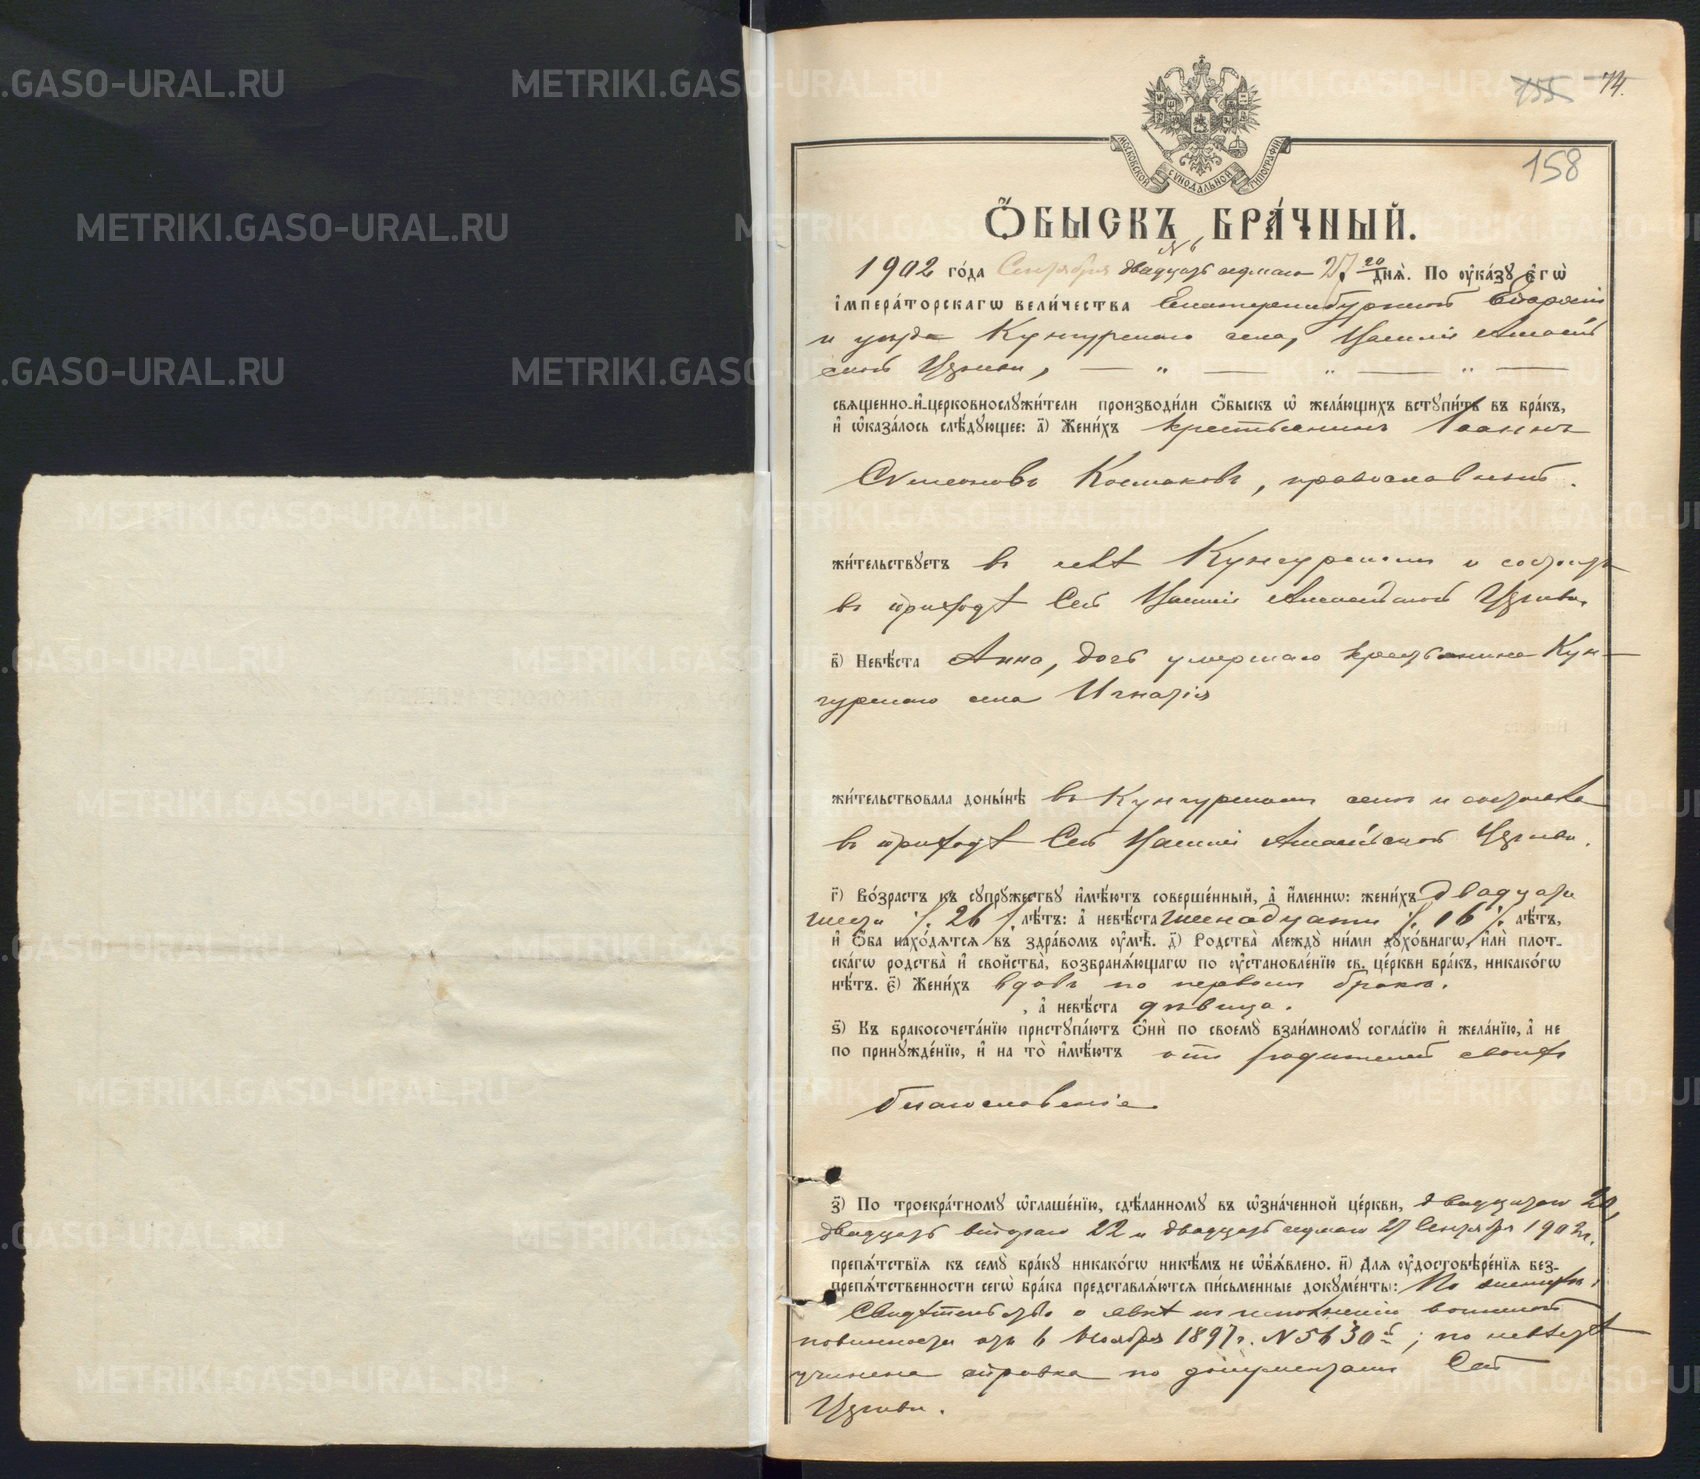 155 74.
МОСКОВСКОЙ СѴНОДАЛЬНОЙ ТИПОГРАФІИ
158
Ѻ҆БЫСКЪ БРА́ЧНЫЙ.
№ 6
1902 го́да Сентября двадцать седьмаго 27 го дня̀. По ᲂу҆ка́зꙋ є҆гѡ̀
і҆мпера́торскагѡ вели́чества Екатеринбургской Епархіи
и уѣзда Кунгурскаго села,
ской Церкви, — „ — „ — „ —
свѧщенно-и҆-церковнослꙋжи́тели производи́ли ѻ҆́быскъ ѡ҆ жела́ющихъ встꙋпи́ть въ бра́къ,
и҆ ѡ҆каза́лось слѣ́дꙋющее: а҃) Жени́хъ крестьянинъ Іоаннъ
Симеоновъ Космаковъ, православный.
жи́тельствꙋетъ въ селѣ Кунгурскомъ и состоитъ
въ приходѣ Сей Церкви.
в҃) Невѣ́ста Анна, дочь умершаго крестьянина Кун-
гурскаго села Игнатія
жи́тельствовала доны́нѣ въ Кунгурскомъ селѣ и состояла
въ приходѣ Сей Церкви.
г҃) Во́зрастъ къ сꙋпрꙋ́жествꙋ и҆мѣ́ютъ соверше́нный, а҆ и҆́меннѡ: жени́хъ двадцати
шести /. 26 /. лѣ́тъ: а҆ невѣ́ста шестнадцати /. 16 /. лѣ́тъ,
и҆ ѻ҆́ба нахо́дѧтсѧ въ здра́вомъ ᲂу҆мѣ̀. д҃) Родства̀ междꙋ̀ ни́ми дꙋхо́внагѡ, и҆лѝ плот-
ска́гѡ родства̀ и҆ сво́йства, возбранѧ́ющагѡ по ᲂу҆становле́нїю св. це́ркви бра́къ, никако́гѡ
нѣ́тъ. є҃) Жени́хъ вдовъ по первомъ бракѣ.
, а҆ невѣ́ста дѣвица.
ѕ҃) Къ бракосочета́нїю пристꙋпа́ютъ ѻ҆нѝ по своемꙋ̀ взаи́мномꙋ согла́сїю и҆ жела́нїю, а҆ не
по принꙋжде́нїю, и҆ на то̀ и҆мѣ́ютъ отъ родителей своихъ
благословеніе.
з҃) По троекра́тномꙋ ѡ҆глаше́нїю, сдѣ́ланномꙋ въ ѡ҆зна́ченной це́ркви, двадцатаго 20,
двадцать втораго 22 и двадцать седьмаго 27 Сентября 1902 г.
препѧ́тствїѧ къ семꙋ̀ бра́кꙋ никако́гѡ никѣ́мъ не ѡ҆б̾ѧ́влено. и҃) Длѧ ᲂу҆достовѣре́нїѧ без-
препѧ́тственности сегѡ̀ бра́ка представлѧ́ютсѧ пи́сьменные докꙋме́нты: По женихѣ,
Свидѣтельство о явкѣ къ исполненію воинской
повинности отъ 6 Ноября 1897 г. № 5630й; по невѣстѣ
учинена справка по документамъ Сей
Церкви.